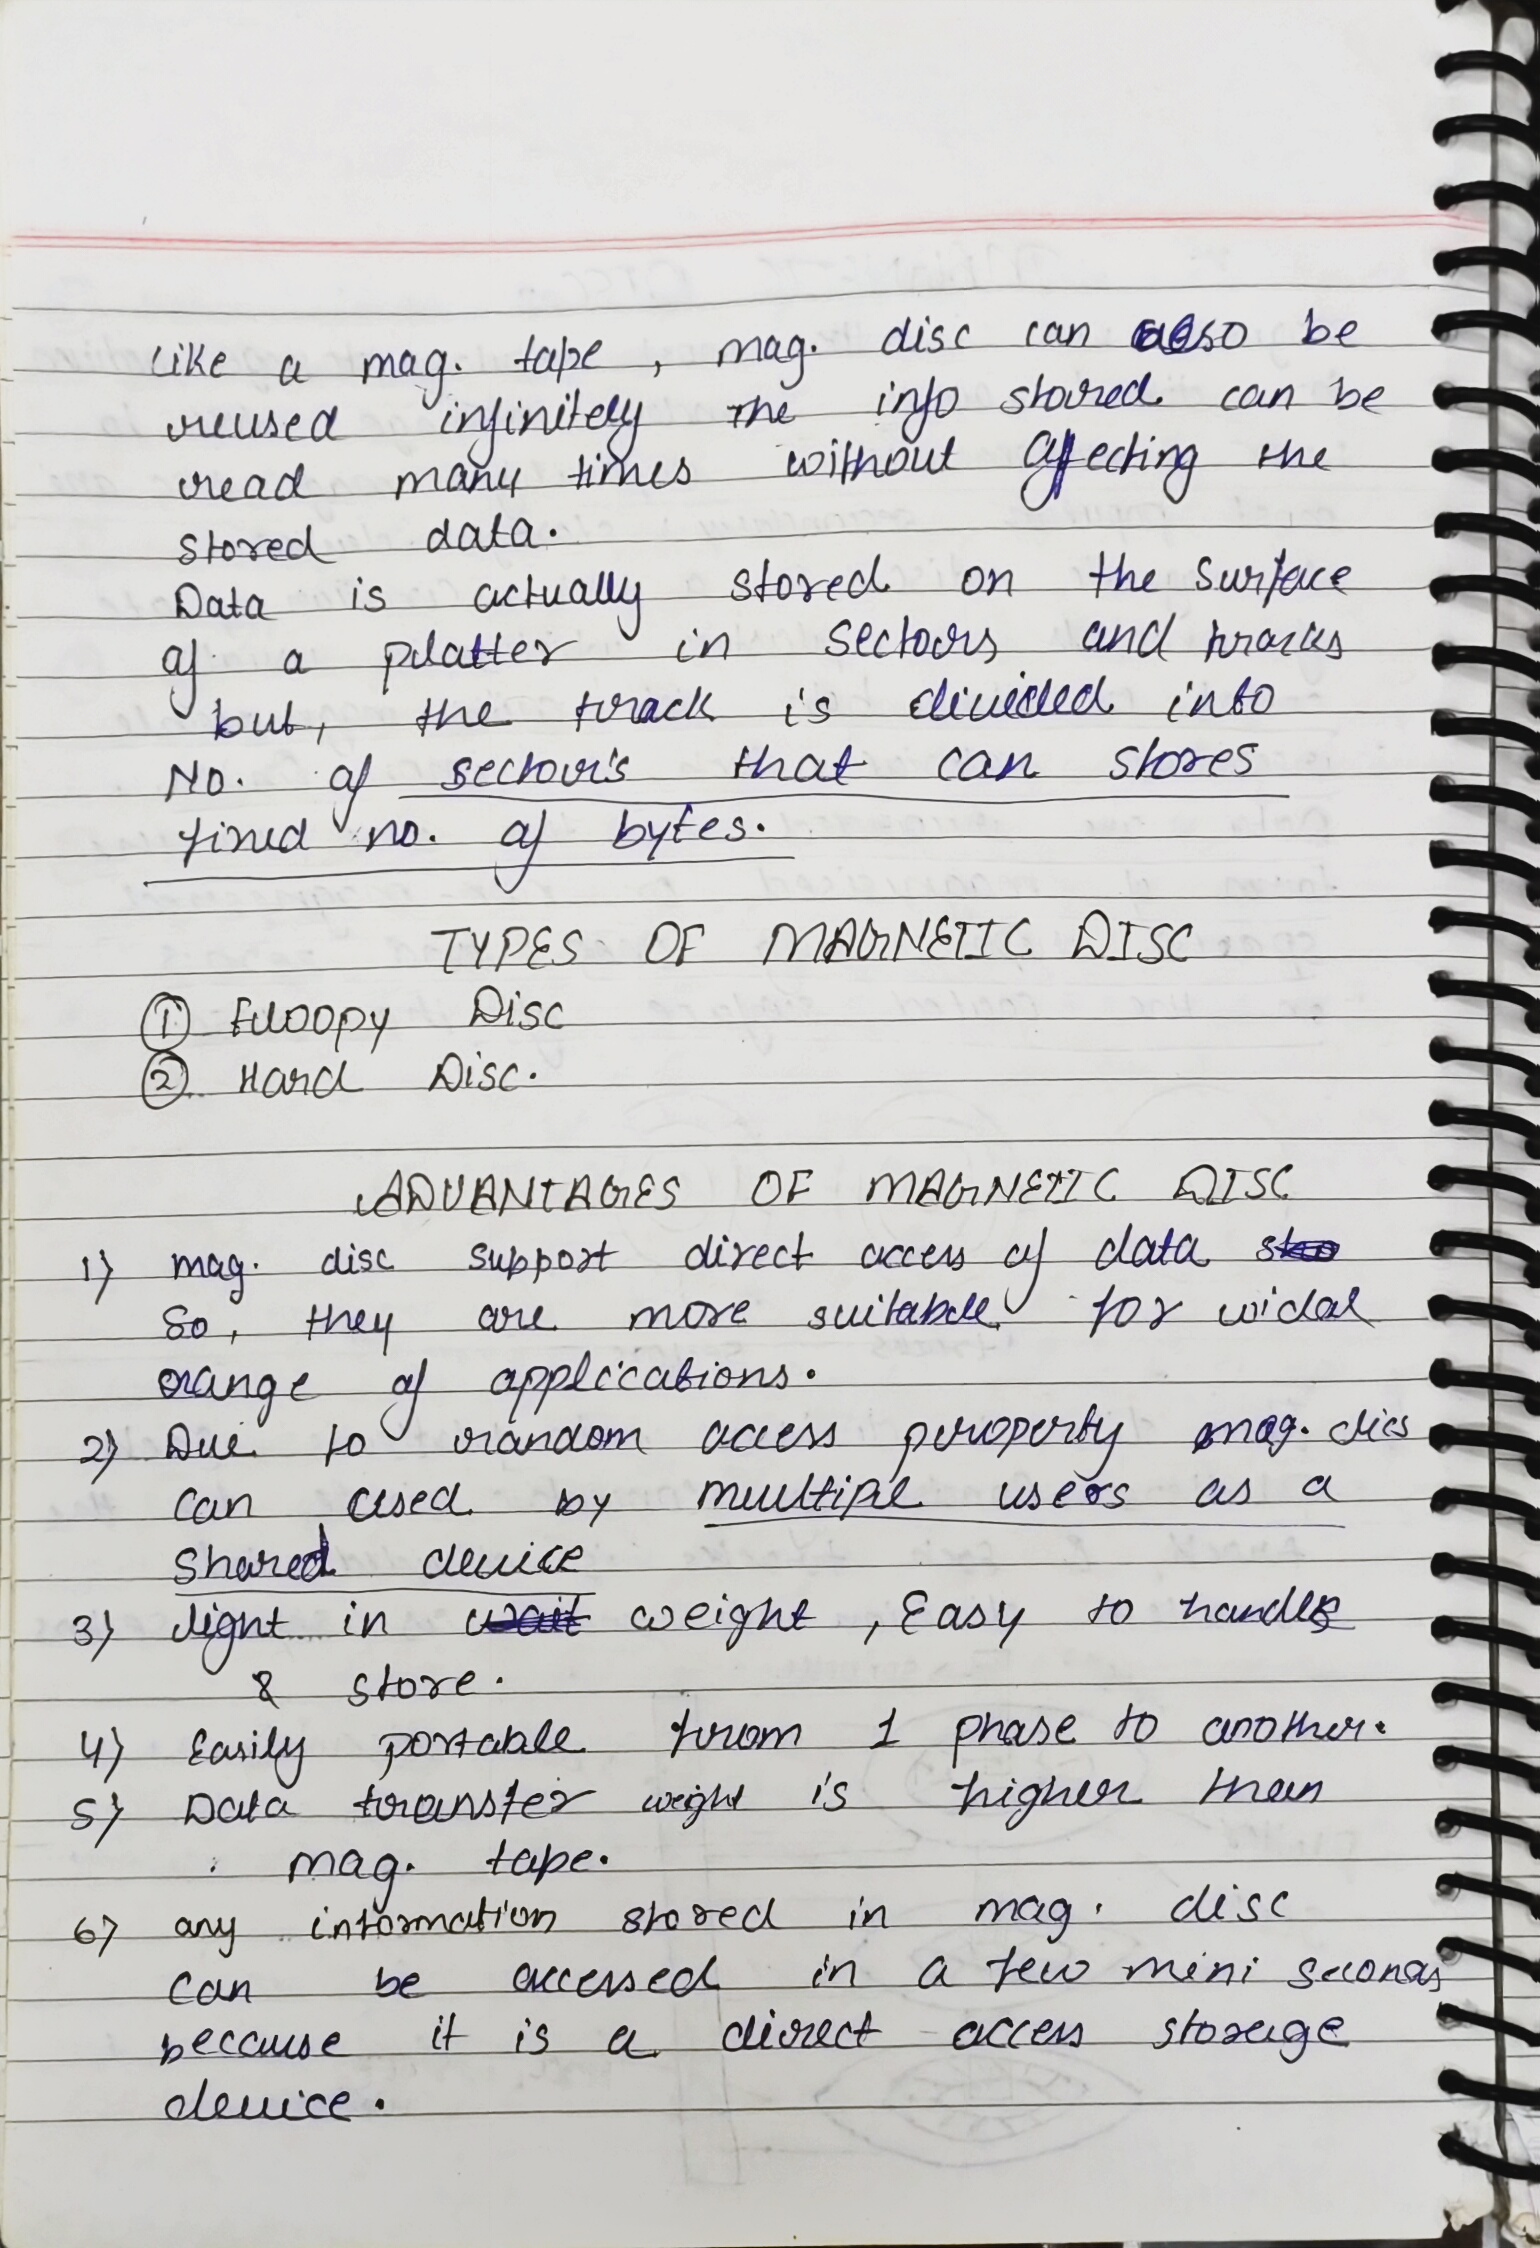 Like a mag. tape, mag. disc can also be
reused infinitely The info stored can be
read many times without affecting the
stored data.
Data is actually stored on the surface
of a platter in sectors and tracks
but, the track is divided into
No. of sectors that can stores
fixed no. of bytes.
TYPES OF MAGNETIC DISC
① Floopy Disc
② Hard Disc.
ADVANTAGES OF MAGNETIC DISC
1) mag. disc support direct access of data
So, they are more suitable for widal
range of applications.
2) Due to random access property mag. dics
can used by multiple users as a
shared device
3) light in weight, Easy to handle
& store.
4) Easily portable from 1 phase to another.
5) Data transfer weight is higher than
mag. tape.
6) any information stored in mag. disc
can be accessed in a few mini seconds
because it is a direct access storage
device.